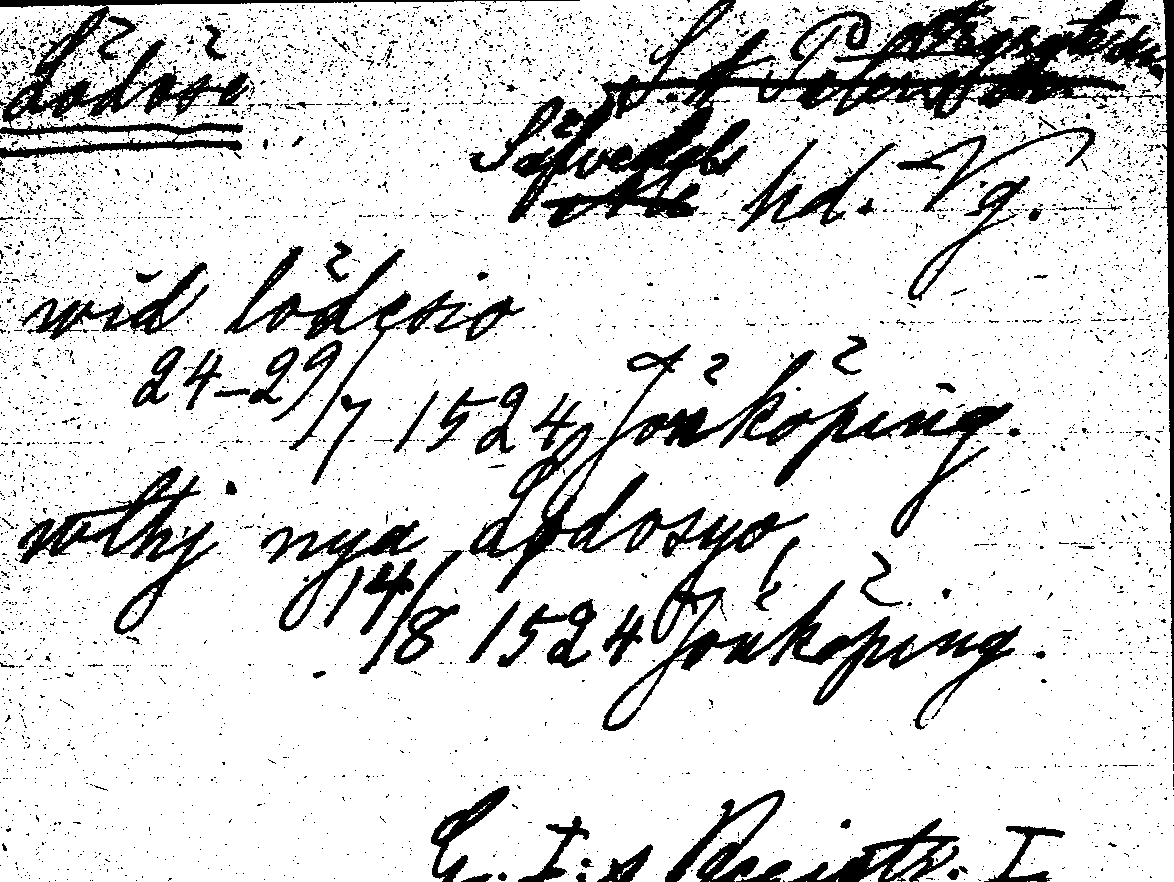 Lödöse
S:t Peders
Sävedals hd. Vg.
wid lödesio
24-29/7 1524 Jönköping.
wthj nya Lödosyo,
14/8 1524 Jönköping.
G. I:s Registr. I